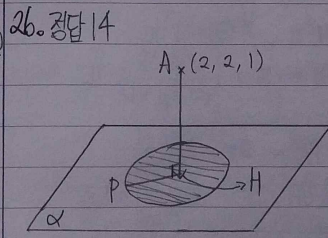 26. 정답 14
A (2, 2, 1)
P
H
α